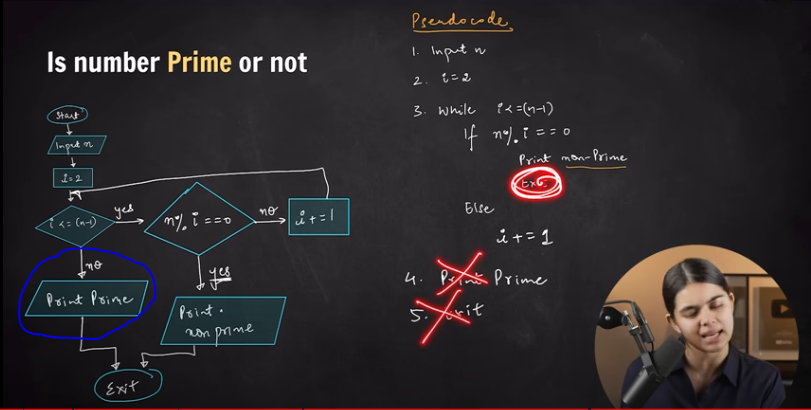 Is number Prime or not
Start
Input n
i=2
i<=(n-1)
yes
n% i ==0
no
i+=1
no
yes
Print Prime
Print
non prime
Exit
Pseudocode
1. Input n
2. i=2
3. while i<=(n-1)
If n% i == 0
Print non-Prime
Else
i+=1
4. Print Prime
5. Exit